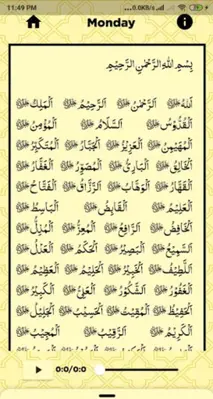 11:49 PM ...0.0KB/s
Monday
بِسْمِ اللهِ الرَّحْمٰنِ الرَّحِيْمِ
اَللهُ ﷻ اَلرَّحْمٰنُ ﷻ اَلرَّحِيْمُ ﷻ اَلْمَلِكُ ﷻ
اَلْقُدُّوْسُ ﷻ اَلسَّلَامُ ﷻ اَلْمُؤْمِنُ ﷻ
اَلْمُهَيْمِنُ ﷻ اَلْعَزِيْزُ ﷻ اَلْجَبَّارُ ﷻ اَلْمُتَكَبِّرُ ﷻ
اَلْخَالِقُ ﷻ اَلْبَارِئُ ﷻ اَلْمُصَوِّرُ ﷻ اَلْغَفَّارُ ﷻ
اَلْقَهَّارُ ﷻ اَلْوَهَّابُ ﷻ اَلرَّزَّاقُ ﷻ اَلْفَتَّاحُ ﷻ
اَلْعَلِيْمُ ﷻ اَلْقَابِضُ ﷻ اَلْبَاسِطُ ﷻ
اَلْخَافِضُ ﷻ اَلرَّافِعُ ﷻ اَلْمُعِزُّ ﷻ اَلْمُذِلُّ ﷻ
اَلسَّمِيْعُ ﷻ اَلْبَصِيْرُ ﷻ اَلْحَكَمُ ﷻ اَلْعَدْلُ ﷻ
اَللَّطِيْفُ ﷻ اَلْخَبِيْرُ ﷻ اَلْحَلِيْمُ ﷻ اَلْعَظِيْمُ ﷻ
اَلْغَفُوْرُ ﷻ اَلشَّكُوْرُ ﷻ اَلْعَلِيُّ ﷻ اَلْكَبِيْرُ ﷻ
اَلْحَفِيْظُ ﷻ اَلْمُقِيْتُ ﷻ اَلْحَسِيْبُ ﷻ اَلْجَلِيْلُ ﷻ
اَلْكَرِيْمُ ﷻ اَلرَّقِيْبُ ﷻ اَلْمُجِيْبُ ﷻ
0:0/0:0